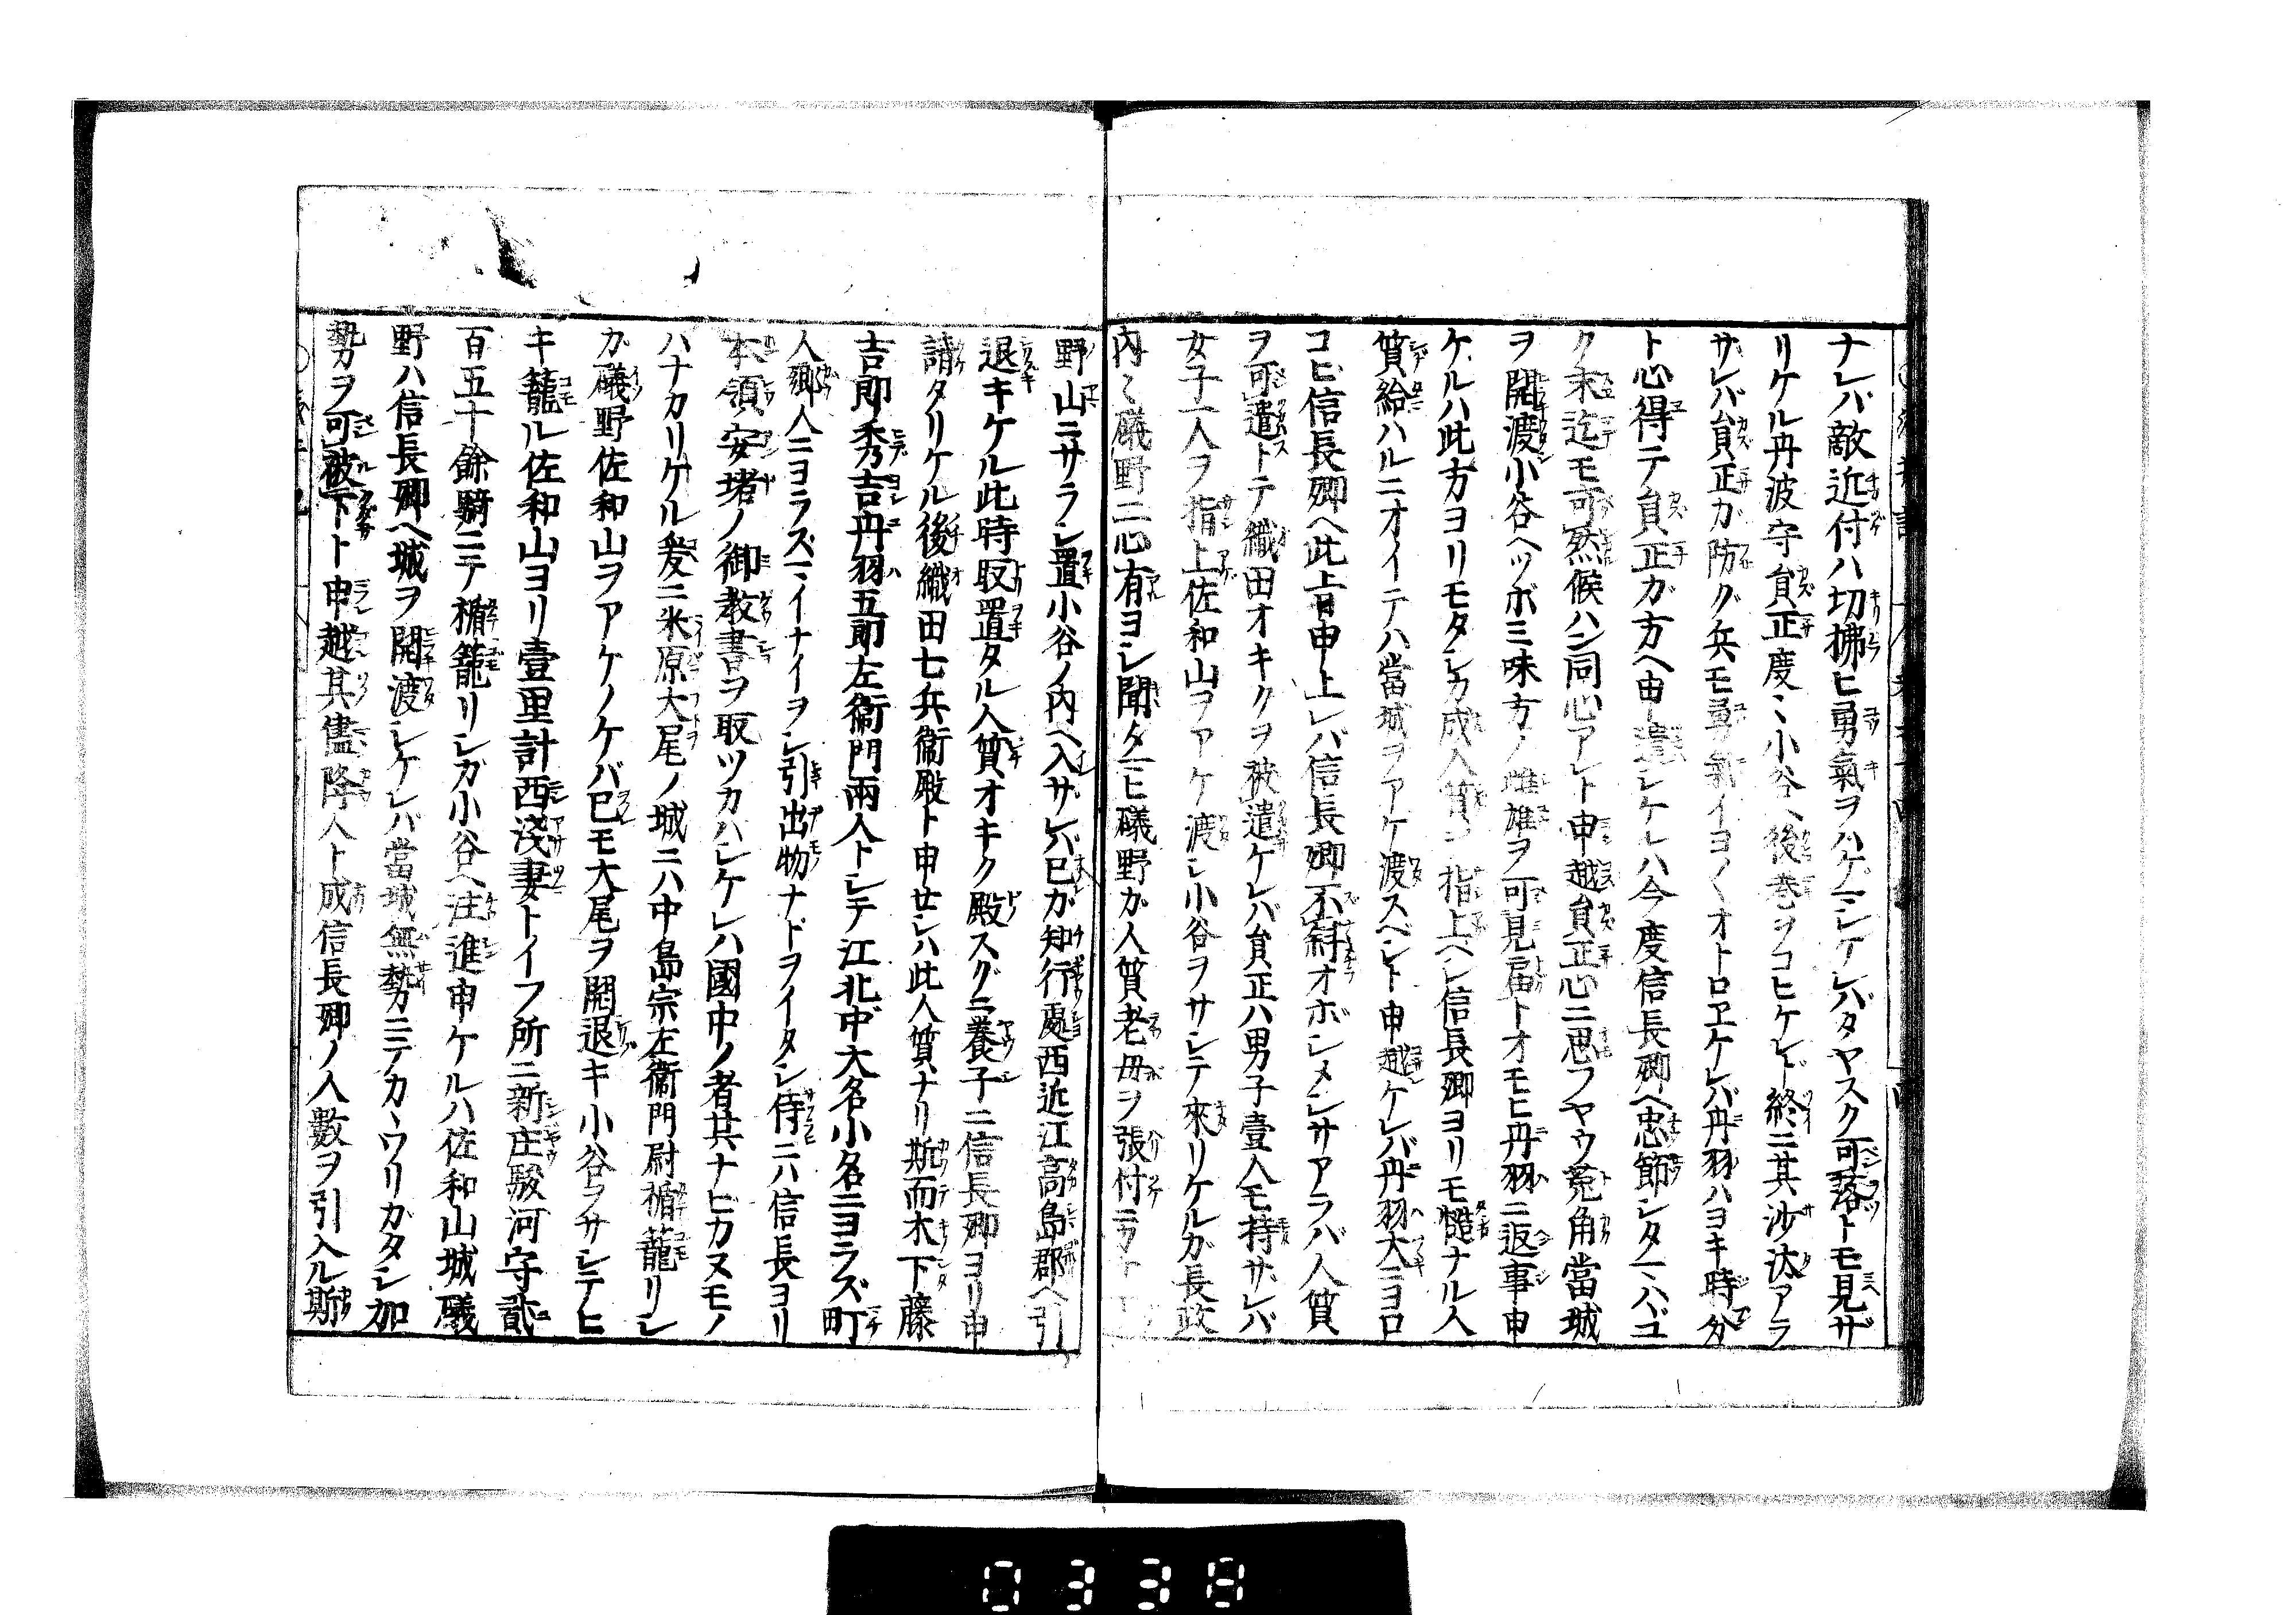 ナレバ敵近付ハ切拂ヒ勇氣ヲハゲミシケレバタヤスク可落トモ見ザ
リケル丹波守員正度〻小谷ヘ後巻ヲコヒケレド終ニ其沙汰アラ
サレバ員正ガ防グ兵モ勇氣イヨ〳〵オトロヱケレバ丹羽ハヨキ時分
ト心得テ員正ガ方ヘ申遣シケルハ今度信長卿ヘ忠節シタマハバユ
ク末迄モ可然候ハン同心アレト申越員正心ニ思フヤウ菟角當城
ヲ開渡小谷ヘツボミ味方ノ雌雄ヲ可見届トオモヒ丹羽ニ返事申
ケルハ此方ヨリモタシカ成人質ヲ指上ベシ信長卿ヨリモ慥ナル人
質給ハルニオイテハ當城ヲアケ渡スベシト申越ケレバ丹羽大ニヨロ
コビ信長卿ヘ此上旨申上レバ信長卿不斜オボシメシサアラバ人質
ヲ可遣トテ織田オキクヲ被遣ケレバ員正八男子壹人モ持サレバ
女子一人ヲ指上佐和山ヲアケ渡シ小谷ヲサシテ來リケルガ長政
内〻磯野二心有ヨシ聞タマヒ磯野カ人質老母ヲ張付ニカケ
野山ニサラシ置小谷ノ内ヘ入ザレバ已ガ知行處西近江高島郡ヘ引
退キケル此時取置タル人質オキク殿スグニ養子ニ信長卿ヨリ申
請タリケル後織田七兵衞殿ト申せシハ此人質ナリ斯而木下藤
吉郎秀吉丹羽五郎左衞門兩人トシテ江北中大名小名ニヨラズ町
人郷人ニヨラズマイナイヲシ引出物ナドヲイタシ侍ニハ信長ヨリ
本領安堵ノ御教書ヲ取ツカハシケレハ國中ノ者共ナビカヌモノ
ハナカリケル爰ニ米原大尾ノ城ニハ中島宗左衞門尉楯籠リシ
カ磯野佐和山ヲアケノケバ已モ大尾ヲ開退キ小谷ヲサシテヒ
キ籠ル佐和山ヨリ壹里計西淺妻トイフ所ニ新庄駿河守貳
百五十餘騎ニテ楯籠リシガ小谷ヘ注進申ケルハ佐和山城磯
野ハ信長卿ヘ城ヲ開渡シケレバ當城無勢ニテカヽワリガタシ加
勢ヲ可被下ト申越其儘降人ト成信長卿ノ人數ヲ引入ル斯